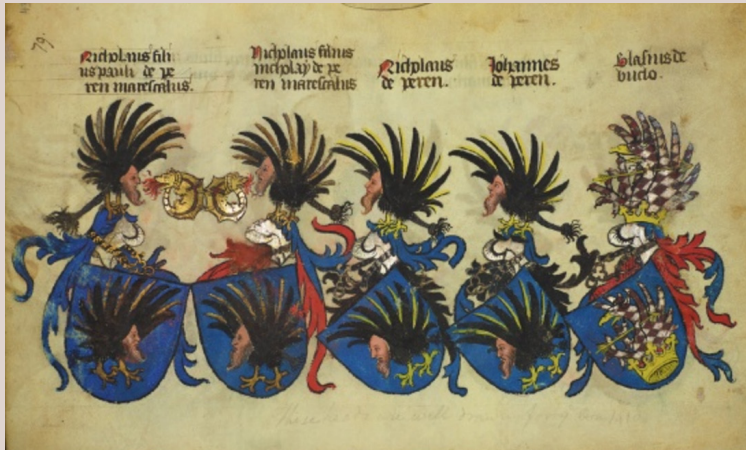 79.
Nicholaus fili
us pauli de pe
ren marescalus.
Nicholaus filius
nicholay de pe
ren marescalus
Nicholaus
de peren.
Johannes
de peren.
Blasius de